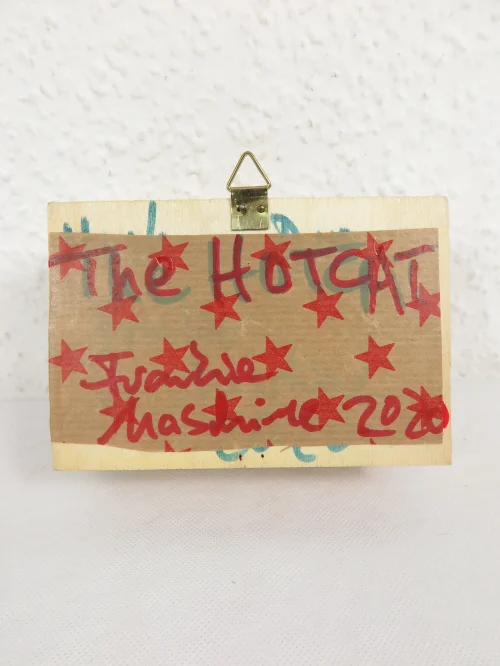 The HOTCAT
Frankie
Maschine 2020